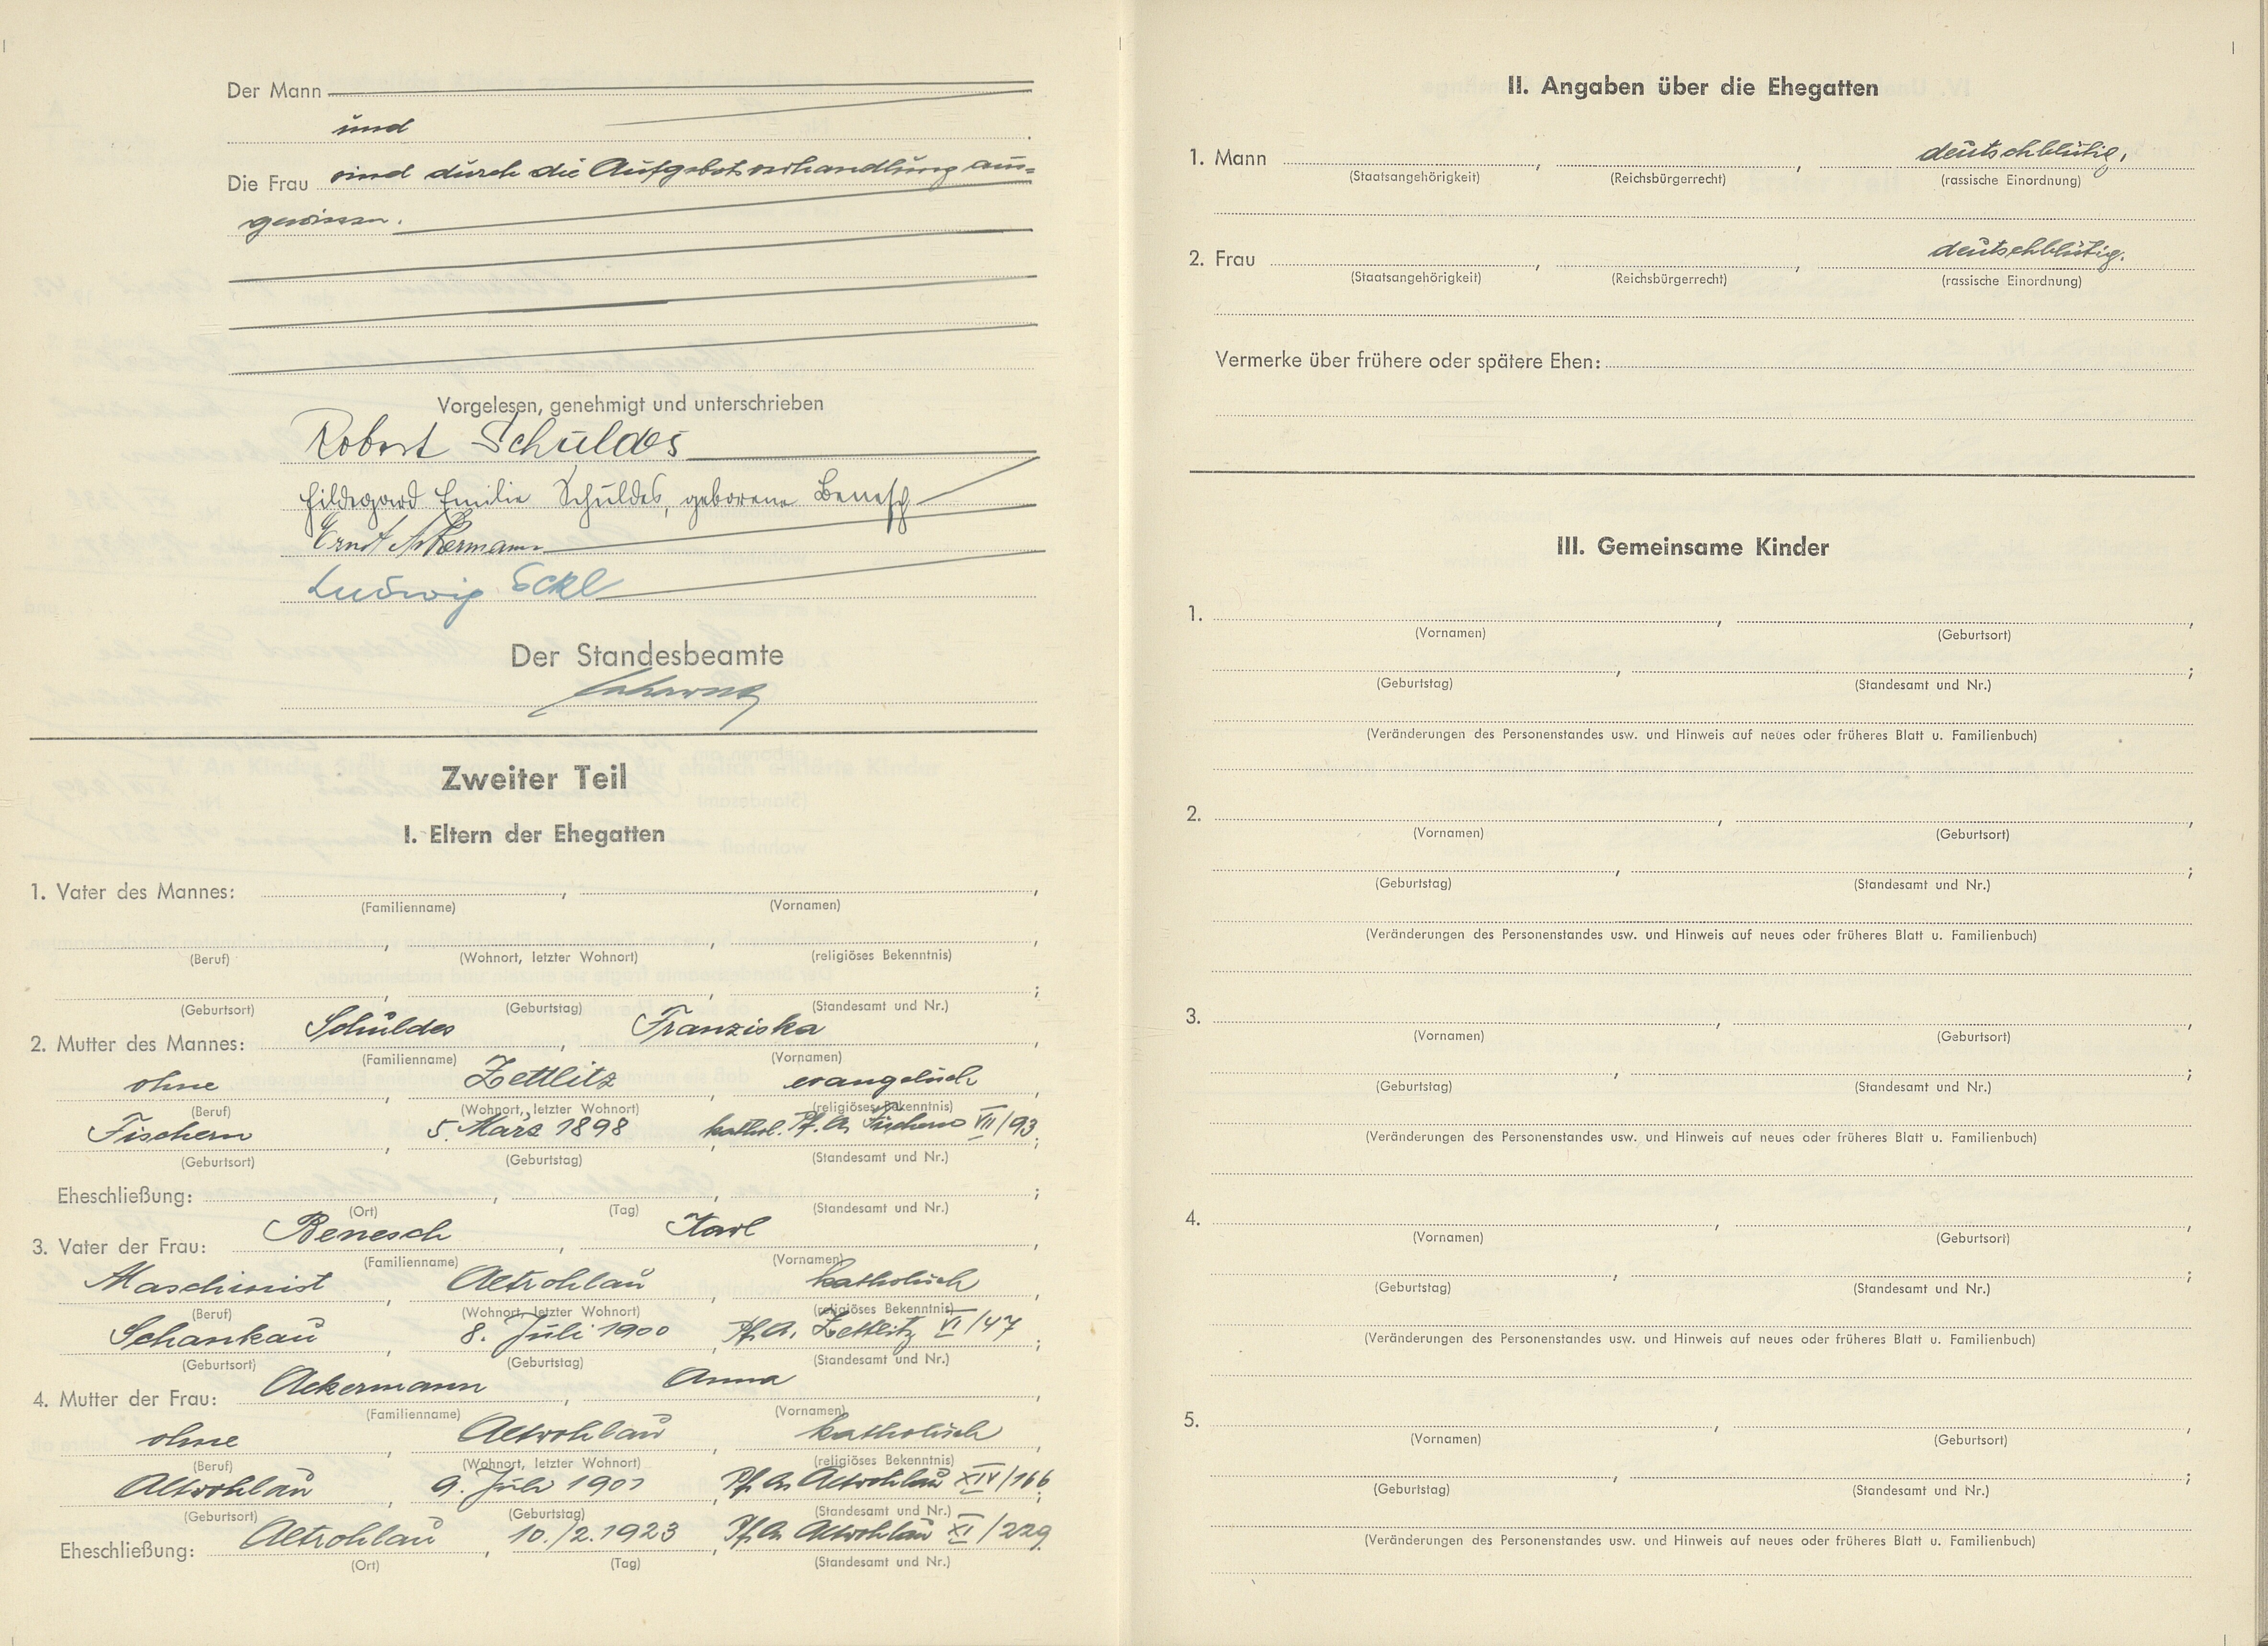 Der Mann
und
Die Frau sind durch die Aufgebotsverhandlung aus=
gewiesen.
Vorgelesen, genehmigt und unterschrieben
Robert Schuldes
Hildegard Emilie Schuldes, geborene Benesch
Ernst Ackermann
Ludwig Eckl
Der Standesbeamte
Zweiter Teil
I. Eltern der Ehegatten
1. Vater des Mannes: , ,
(Familienname) (Vornamen)
, , ,
(Beruf) (Wohnort, letzter Wohnort) (religiöses Bekenntnis)
, , ;
(Geburtsort) (Geburtstag) (Standesamt und Nr.)
2. Mutter des Mannes: Schuldes, Franziska,
(Familienname) (Vornamen)
ohne, Zettlitz, evangelisch,
(Beruf) (Wohnort, letzter Wohnort) (religiöses Bekenntnis)
Fischern, 5. März 1898, kathol. Pf. A. Fischern VII/93;
(Geburtsort) (Geburtstag) (Standesamt und Nr.)
Eheschließung: , , ;
(Ort) (Tag) (Standesamt und Nr.)
3. Vater der Frau: Benesch, Karl,
(Familienname) (Vornamen)
Maschinist, Altrohlau, katholisch,
(Beruf) (Wohnort, letzter Wohnort) (religiöses Bekenntnis)
Schankau, 8. Juli 1900, Pf. A. Zettlitz VI/47;
(Geburtsort) (Geburtstag) (Standesamt und Nr.)
4. Mutter der Frau: Ackermann, Anna,
(Familienname) (Vornamen)
ohne, Altrohlau, katholisch,
(Beruf) (Wohnort, letzter Wohnort) (religiöses Bekenntnis)
Altrohlau, 9. Juli 1901, Pf. A. Altrohlau XIV/166;
(Geburtsort) (Geburtstag) (Standesamt und Nr.)
Eheschließung: Altrohlau, 10./2. 1923, Pf. A. Altrohlau XI/229.
(Ort) (Tag) (Standesamt und Nr.)
II. Angaben über die Ehegatten
1. Mann , , deutschblütig.
(Staatsangehörigkeit) (Reichsbürgerrecht) (rassische Einordnung)
2. Frau , , deutschblütig.
(Staatsangehörigkeit) (Reichsbürgerrecht) (rassische Einordnung)
Vermerke über frühere oder spätere Ehen:
III. Gemeinsame Kinder
1. , ,
(Vornamen) (Geburtsort)
, ;
(Geburtstag) (Standesamt und Nr.)
(Veränderungen des Personenstandes usw. und Hinweis auf neues oder früheres Blatt u. Familienbuch)
2. , ,
(Vornamen) (Geburtsort)
, ;
(Geburtstag) (Standesamt und Nr.)
(Veränderungen des Personenstandes usw. und Hinweis auf neues oder früheres Blatt u. Familienbuch)
3. , ,
(Vornamen) (Geburtsort)
, ;
(Geburtstag) (Standesamt und Nr.)
(Veränderungen des Personenstandes usw. und Hinweis auf neues oder früheres Blatt u. Familienbuch)
4. , ,
(Vornamen) (Geburtsort)
, ;
(Geburtstag) (Standesamt und Nr.)
(Veränderungen des Personenstandes usw. und Hinweis auf neues oder früheres Blatt u. Familienbuch)
5. , ,
(Vornamen) (Geburtsort)
, ;
(Geburtstag) (Standesamt und Nr.)
(Veränderungen des Personenstandes usw. und Hinweis auf neues oder früheres Blatt u. Familienbuch)